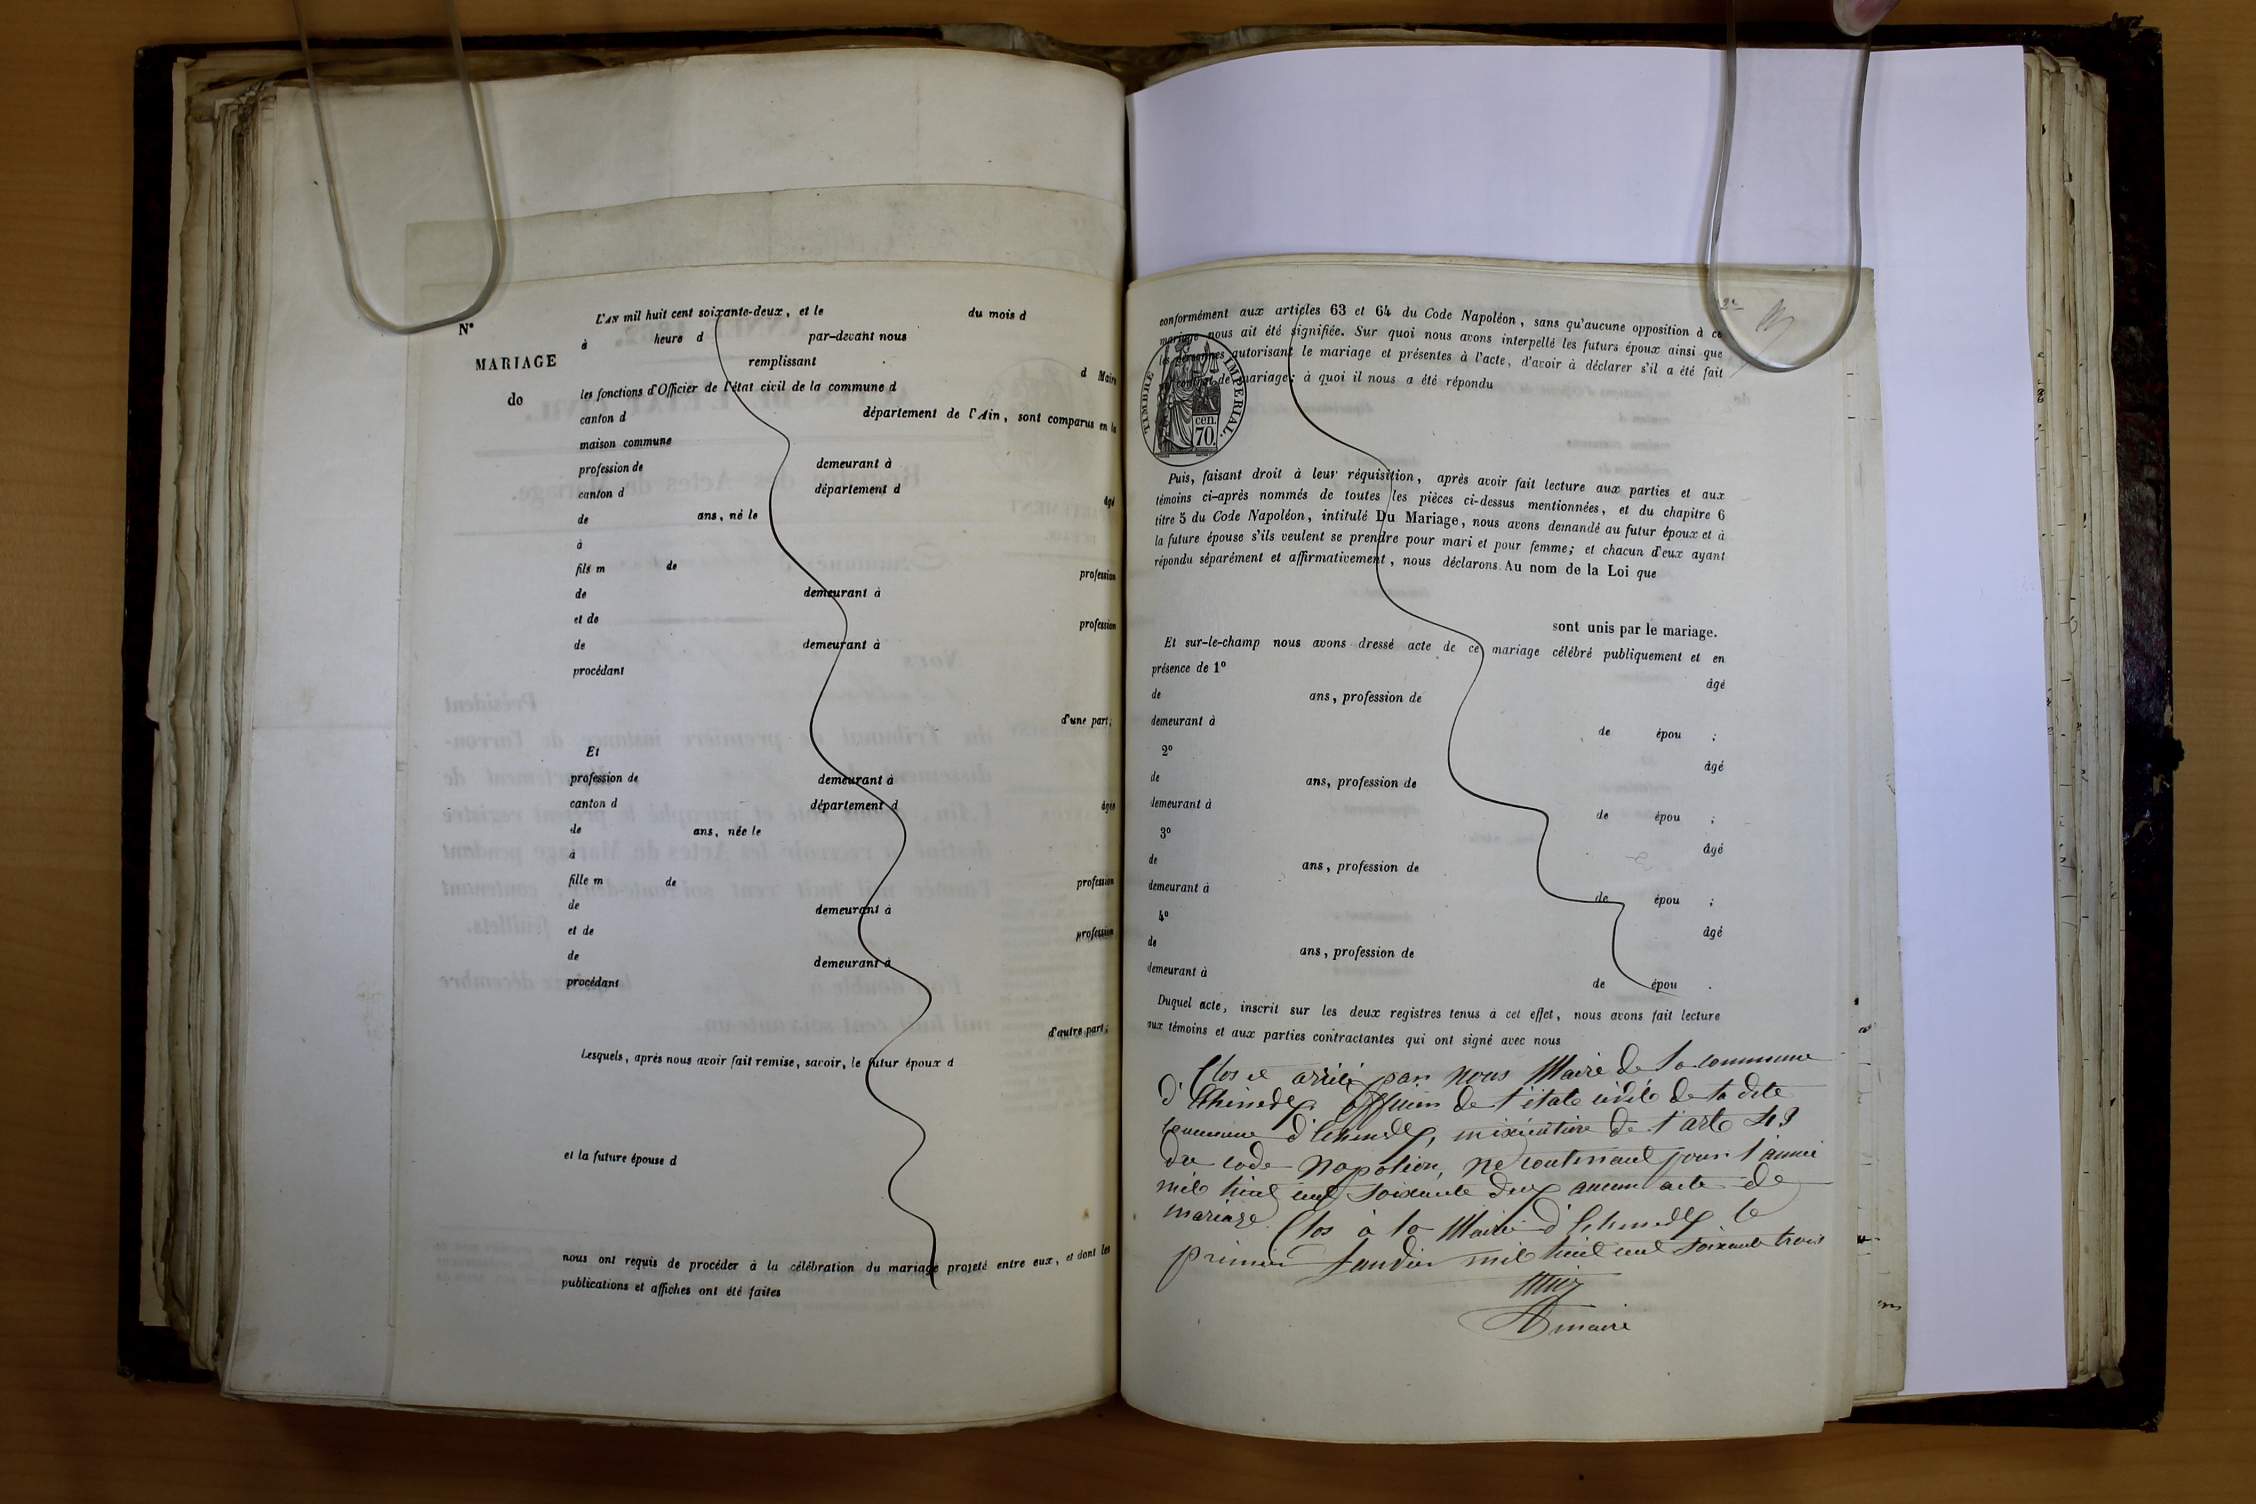 L'AN mil huit cent soixante-deux, et le du mois d
N° à heure d par-devant nous
MARIAGE remplissant d Maire
de les fonctions d'Officier de l'état civil de la commune d
canton d département de l'Ain, sont comparus en la
maison commune
profession de demeurant à
canton d département d âgé
de ans, né le
à
fils m de profession
de demeurant à
et de profession
de demeurant à
procédant
d'une part;
Et
profession de demeurant à
canton d département d âgée
de ans, née le
à
fille m de profession
de demeurant à
et de profession
de demeurant à
procédant
d'autre part;
Lesquels, après nous avoir fait remise, savoir, le futur époux d
et la future épouse d
nous ont requis de procéder à la célébration du mariage projeté entre eux, et dont les
publications et affiches ont été faites
conformément aux articles 63 et 64 du Code Napoléon, sans qu'aucune opposition à ce
mariage nous ait été signifiée. Sur quoi nous avons interpellé les futurs époux ainsi que
les personnes autorisant le mariage et présentes à l'acte, d'avoir à déclarer s'il a été fait
un contrat de mariage; à quoi il nous a été répondu
TIMBRE IMPERIAL.
cen.
70.
Puis, faisant droit à leur réquisition, après avoir fait lecture aux parties et aux
témoins ci-après nommés de toutes les pièces ci-dessus mentionnées, et du chapitre 6
titre 5 du Code Napoléon, intitulé Du Mariage, nous avons demandé au futur époux et à
la future épouse s'ils veulent se prendre pour mari et pour femme; et chacun d'eux ayant
répondu séparément et affirmativement, nous déclarons Au nom de la Loi que
sont unis par le mariage.
Et sur-le-champ nous avons dressé acte de ce mariage célébré publiquement et en
présence de 1° âgé
de ans, profession de
demeurant à de épou ;
2° âgé
de ans, profession de
demeurant à de épou ;
3° âgé
de ans, profession de
demeurant à de épou ;
4° âgé
de ans, profession de
demeurant à de épou .
Duquel acte, inscrit sur les deux registres tenus à cet effet, nous avons fait lecture
aux témoins et aux parties contractantes qui ont signé avec nous
Clos et arrêté par nous Maire de la commune
d'Echenevex officier de l'état civil de la dite
commune d'Echenevex, en exécution de l'art 43
du code Napoléon, ne contenant pour l'année
mil huit cent soixante deux aucun acte de
mariage. Clos à la Mairie d'Echenevex le
premier Janvier mil huit cent soixante trois
maire